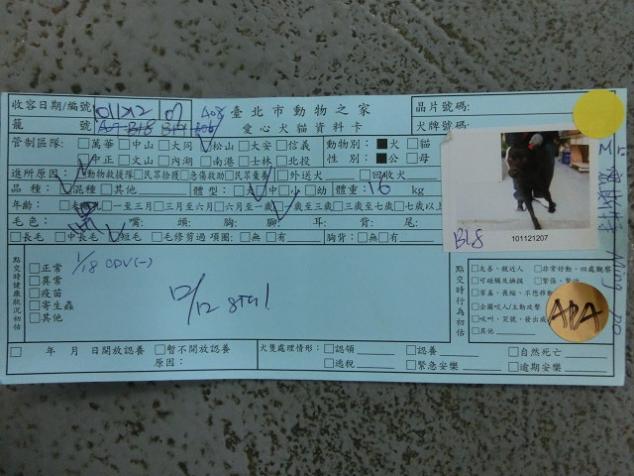 收容日期/編號 101/12/12 07 408 臺北市動物之家 晶片號碼:
籠 號 愛心犬貓資料卡 犬牌號碼:
管制區隊: □萬華 □中山 □大同 □松山 □大安 □信義 動物別: ■犬 □貓
□中正 □文山 □內湖 □南港 □士林 □北投 性 別: ■公 □母
進所原因: □動物救援隊 □民眾拾獲 □急傷救助 □民眾棄養 □外送犬 □回收犬
品 種: □混種 □其他 體 型: □大 □中 □小 □幼 體重: 16 kg
年齡: □一至三月 □三至六月 □六月至一歲 □一歲至三歲 □三歲至七歲 □七歲以上
毛色: 黑 嘴: 頭: 胸: 腳: 耳: 背: 尾:
□長毛 □中長毛 □短毛 □毛修剪過 項圈: □無 □有 胸背: □無 □有
B18
101121207
點交時健康狀況初估
□正常
□異常
□疫苗
□寄生蟲
□其他
1/18 CDV(-)
12/12 8in1
點交時行為初估
□友善、親近人 □非常好動、四處觀察
□可碰觸及擁抱 □緊張、
□害羞、畏縮、不想移動
□企圖咬人/主動攻擊
□吠叫、哭號、發出
□其他
ADA
□ 年 月 日開放認養 □暫不開放認養 犬隻處理情形: □認領 □認養 □自然死亡
原因: □逃脫 □緊急安樂 □逾期安樂